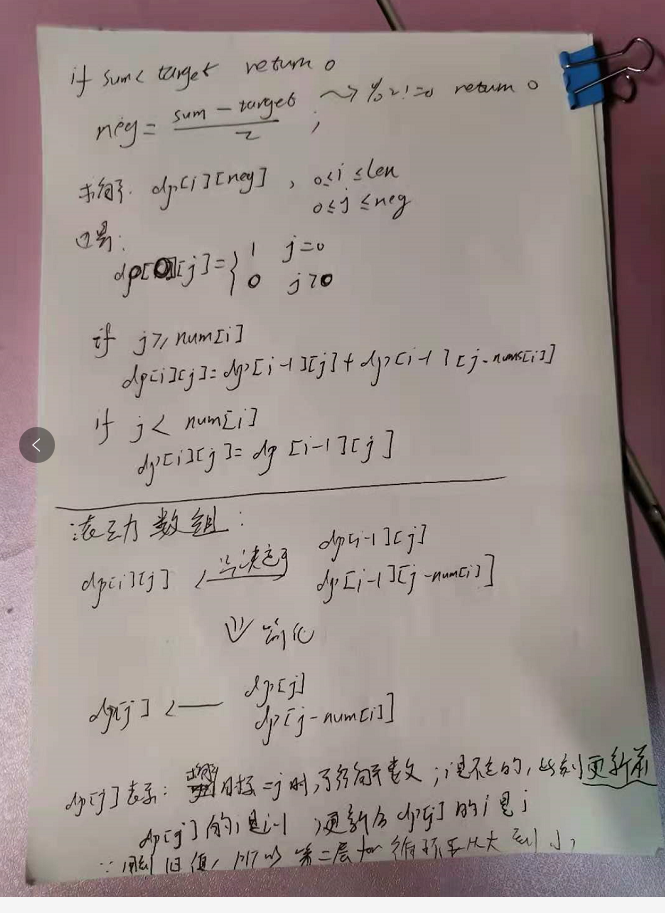 if sum < target return 0
neg = (sum - target)/2 ; → %2!=0 return 0
求解: dp[i][neg] , 0≤i≤len
0≤j≤neg
边界:
dp[0][j]={ 1 j=0
0 j>0
if j≥num[i]
dp[i][j]=dp[i-1][j]+dp[i-1][j-nums[i]]
if j< num[i]
dp[i][j]= dp[i-1][j]
滚动数组:
dp[i][j] ← 只决定于 dp[i-1][j]
dp[i-1][j-num[i]]
⇓ 简化
dp[j] ← dp[j]
dp[j-num[i]]
dp[j]表示: 目标=j时, 解数; i是不定的, 此刻更新前
dp[j]的i是i-1 ,更新后dp[j]的i是i
∵用到旧值, 所以第二层for循环要从大到小,